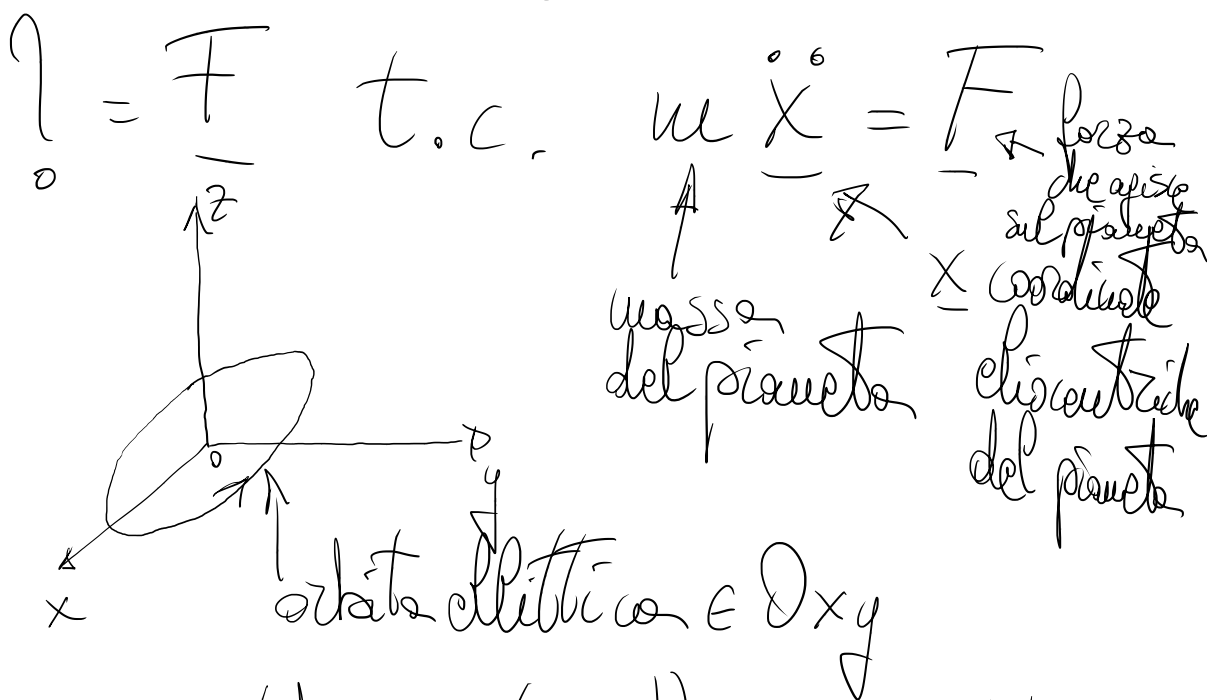 ? = F t.c. m ẍ = F
forza
che agisce
sul pianeta
massa
del pianeta
x coordinate
eliocentriche
del pianeta
z
o
y
x
orbita ellittica ∈ Oxy